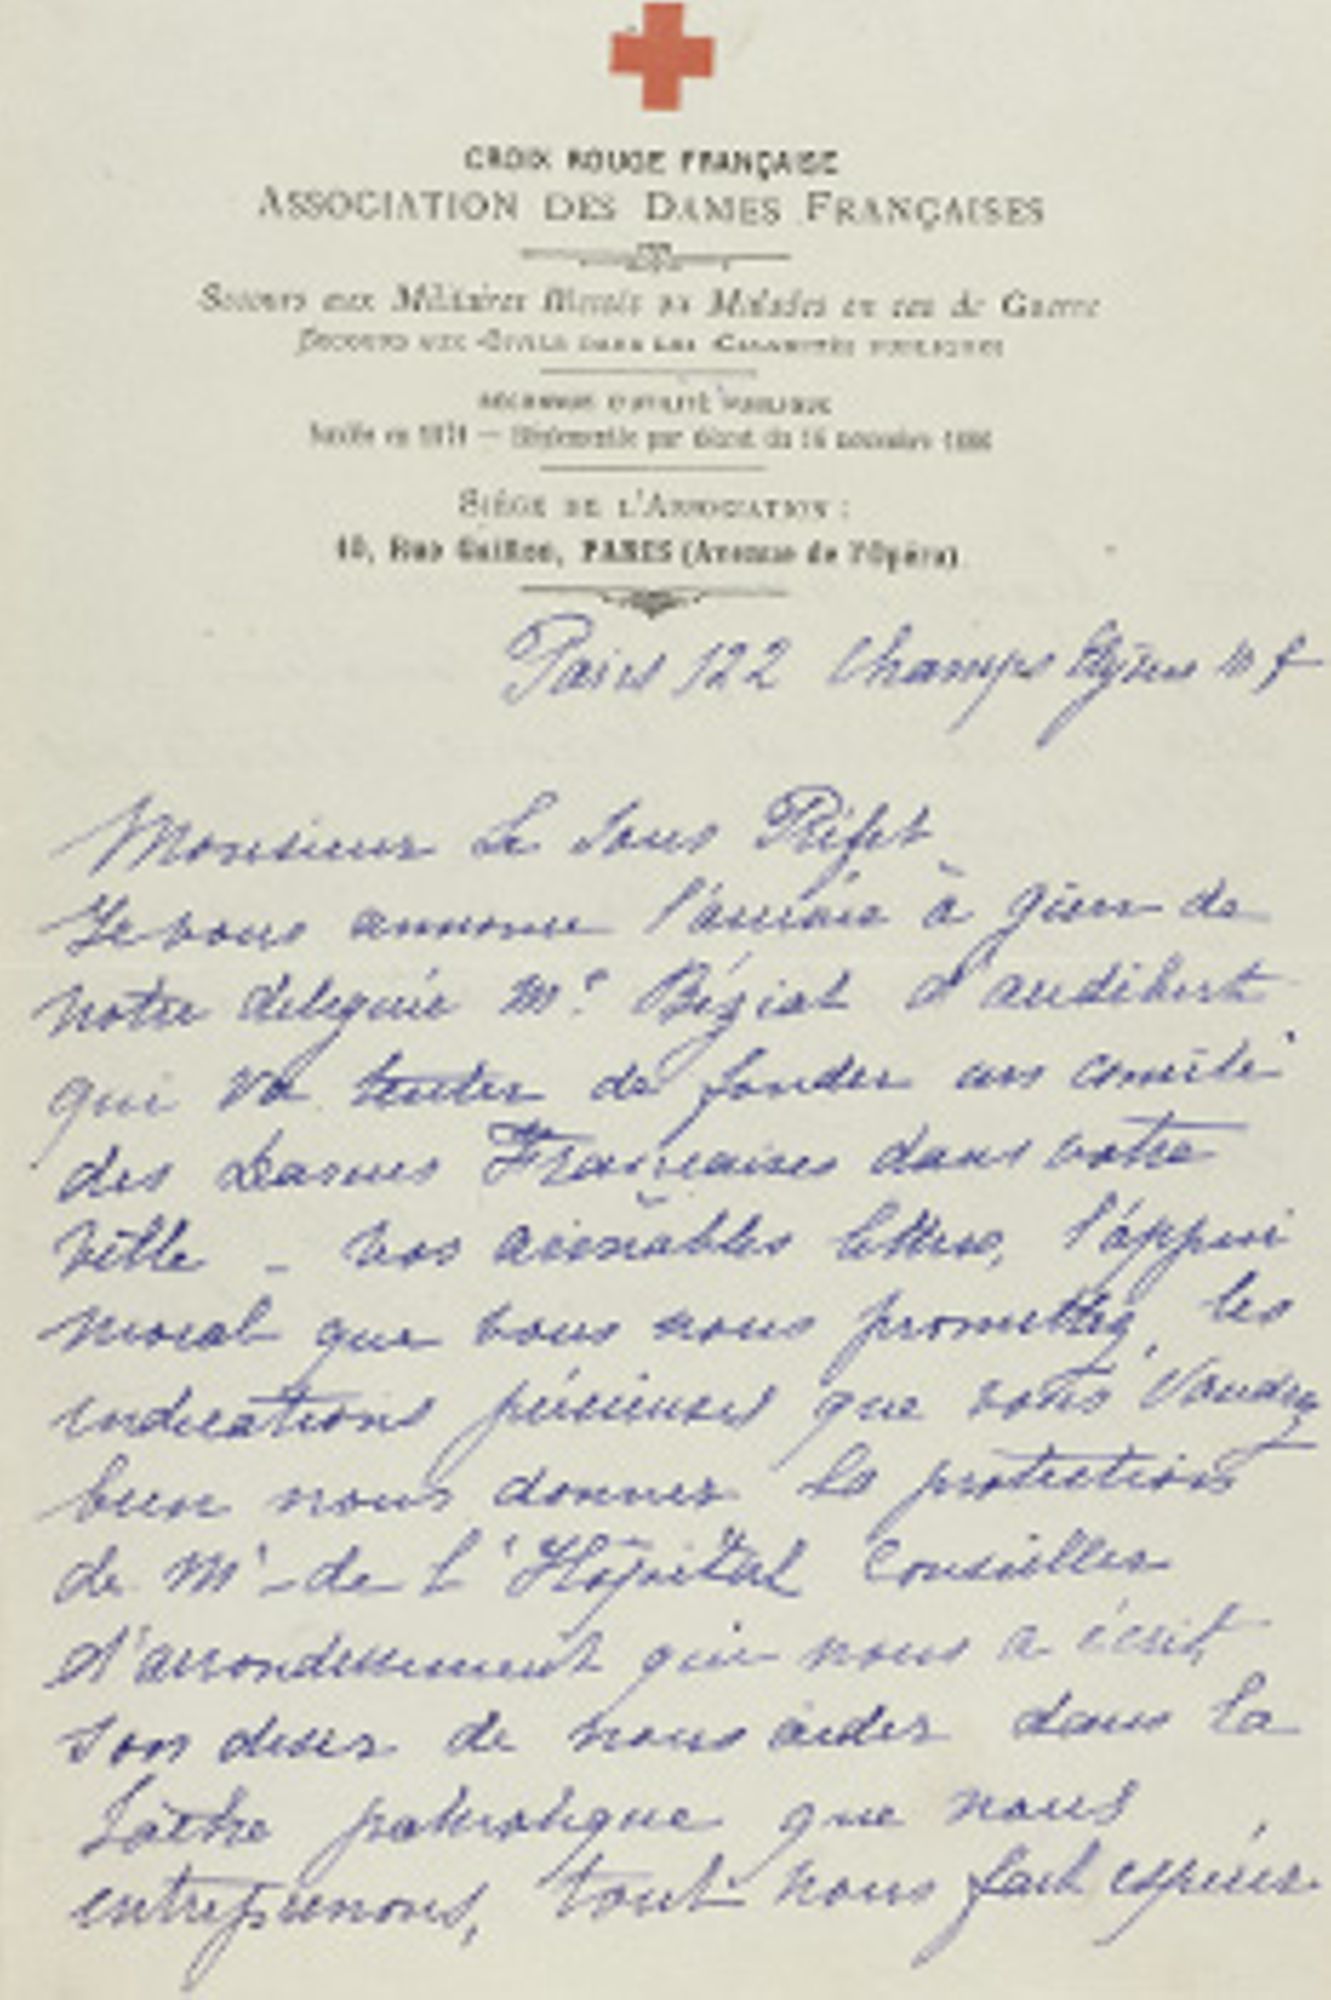 CROIX ROUGE FRANÇAISE
ASSOCIATION DES DAMES FRANÇAISES
Secours aux Militaires Blessés ou Malades en cas de Guerre
SECOURS AUX CIVILS DANS LES CALAMITÉS PUBLIQUES
RECONNUE D'UTILITÉ PUBLIQUE
Fondée en 1879 — Réglementée par décret du 16 novembre 1886
SIÈGE DE L'ASSOCIATION :
10, Rue Gaillon, PARIS (Avenue de l'Opéra)
Paris 122 Champs Elysées
Monsieur Le Sous Préfet
Je vous annonce l'arrivée à Gien de
notre déléguée Me Béziat d'audibert
qui va tenter de fonder un comité
des Dames Françaises dans votre
ville - vos aimables lettres, l'appui
moral que vous nous promettez, les
indications précieuses que vous voudrez
bien nous donner la protection
de Mr de L'Hôpital Conseiller
d'arrondissement qui nous a écrit
son désir de nous aider dans la
tâche patriotique que nous
entreprenons, tout nous fait espérer